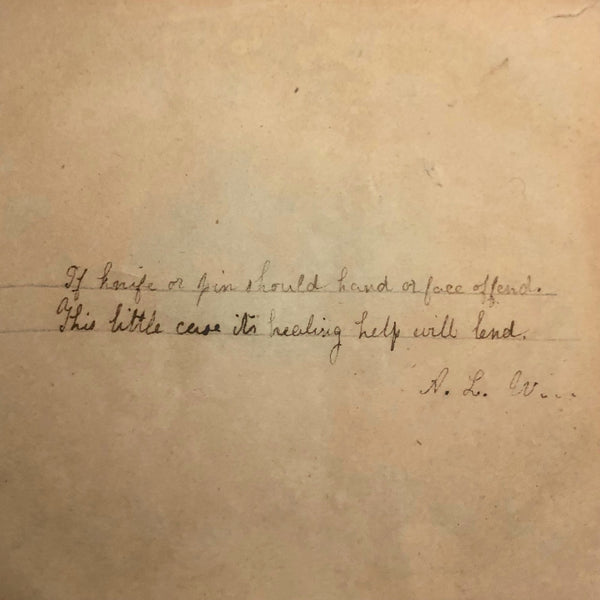 If knife or pin should hand or face offend.
This little case its healing help will lend.
A. L. W...